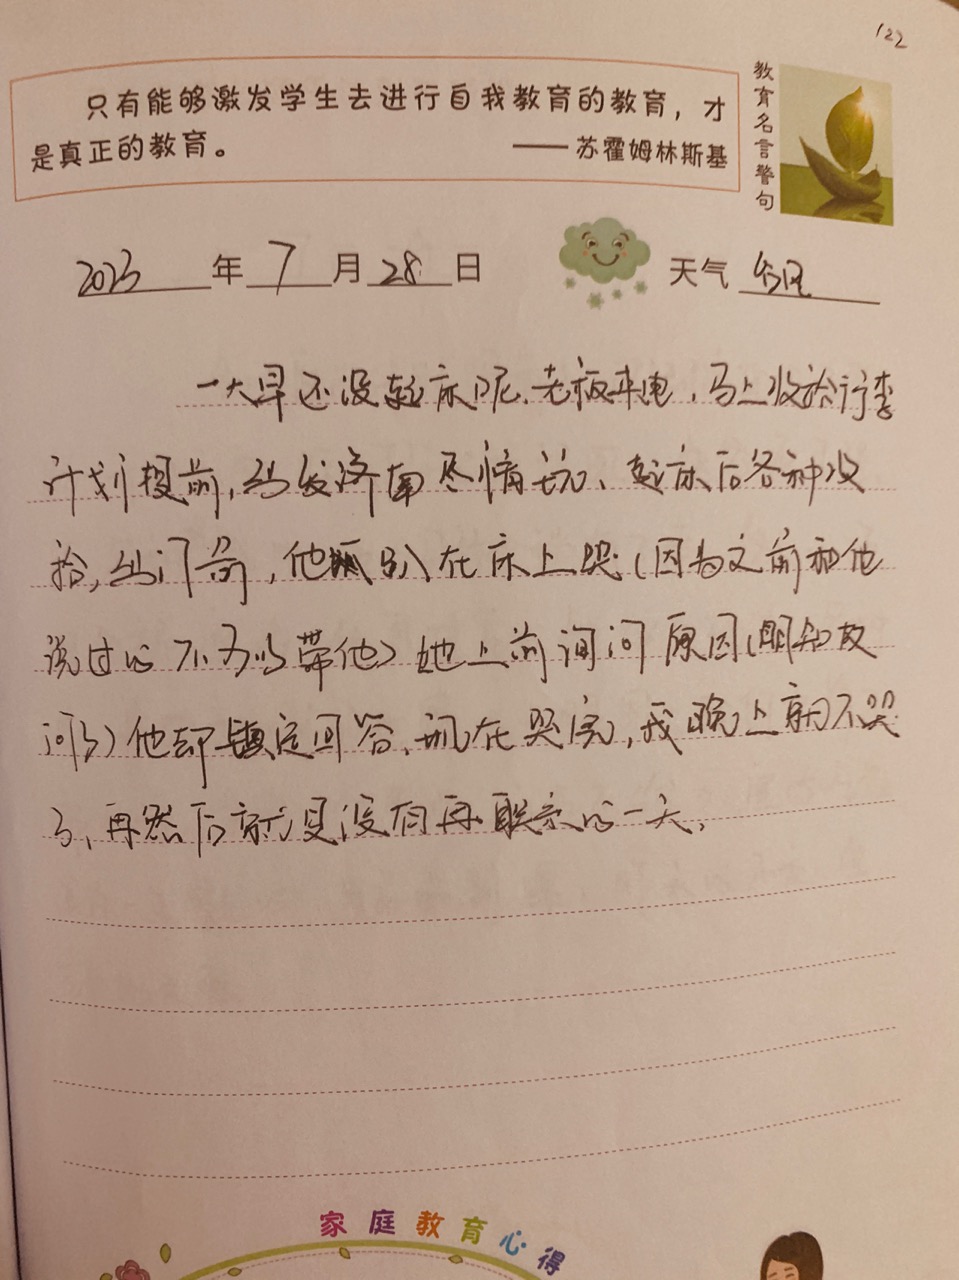 122
只有能够激发学生去进行自我教育的教育，才
是真正的教育。 —— 苏霍姆林斯基
教育名言警句
2023年7月28日 天气
一大早还没起床呢、老板来电，马上收拾行李
计划提前，出发济南尽情玩、起床后各种收
拾，出门前，他趴在床上哭（因为之前和他
说过的不方带他）她上前询问原因（明知故
问）他却镇定回答、现在哭完，我晚上就不哭
了、再然后就是没有再联系的一天、
家庭教育心得